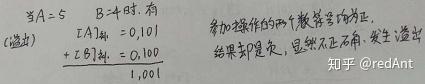 当A=5 B=4时.有
(溢出) [A]补 = 0,101
+ [B]补 = 0,100
1,001
参加操作的两个数符号均为正,
结果却是负,显然不正确.发生溢出
知乎 @redAnt